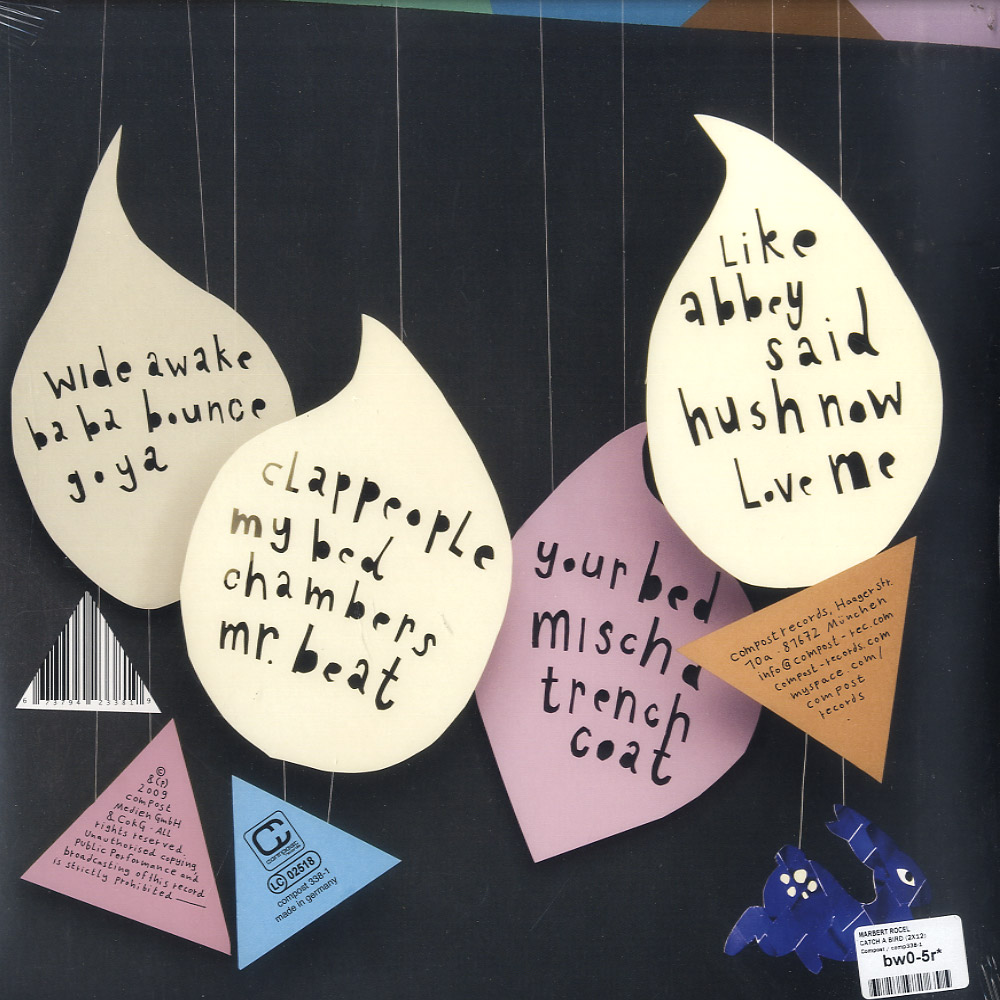 wide awake
ba ba bounce
goya
clappeople
my bed
chambers
mr. beat
Like
abbey
said
hush now
Love me
your bed
mischa
trench
coat
compost records, Haagerstr.
10a · 81672 München
info@compost-rec.com
compost-records.com
myspace.com/
compost
records
6 73794 23381 9
©
& (p)
2009
compost
Medien GmbH
& CoKG · All
rights reserved.
Unauthorised copying,
public Performance and
broadcasting of this record
is strictly prohibited
compost
LC 02518
compost 338-1
made in germany
MARBERT ROCEL
CATCH A BIRD (2X12)
Compost / comp338-1
bw0-5r*